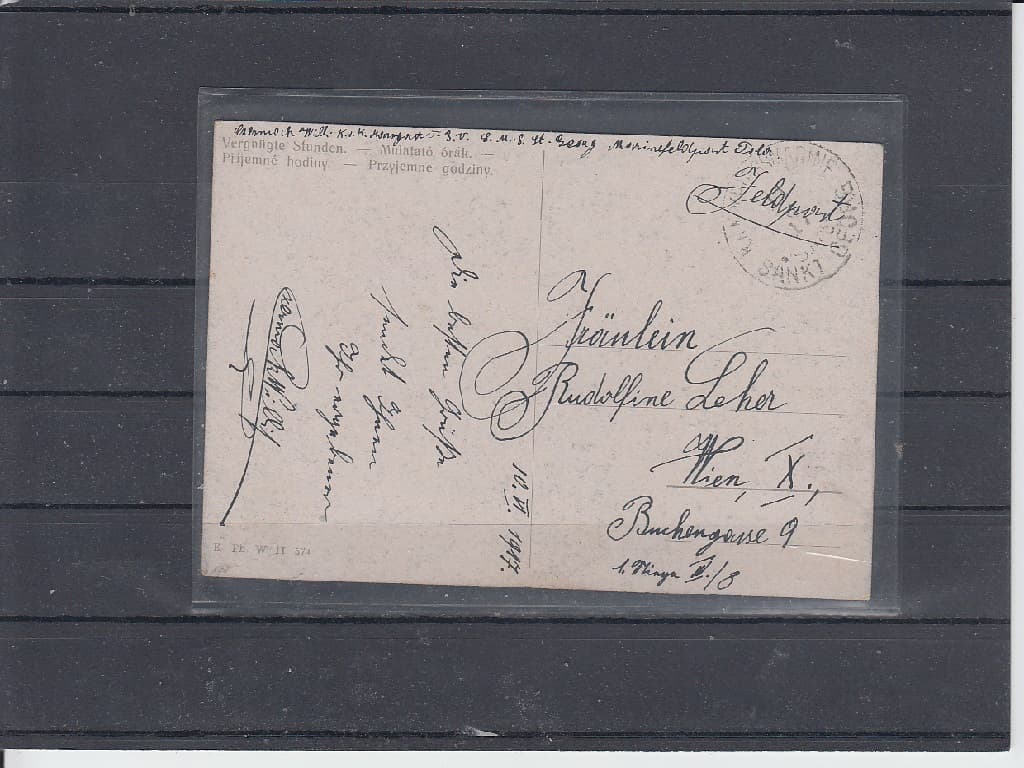 Will. K.u.K. S.M.S. St. Georg Marinefeldpost Pola
Vergnügte Stunden. — Mulatató órák. —
Příjemné hodiny. — Przyjemne godziny.
Feldpost
GEORG
SANKT
Fräulein
Rudolfine Leher
Wien, X.,
Buchengasse 9
1. Stiege II./8
10. VI 1917.
Die besten Grüße
sendet Ihnen
Ihr ergebener
Willi